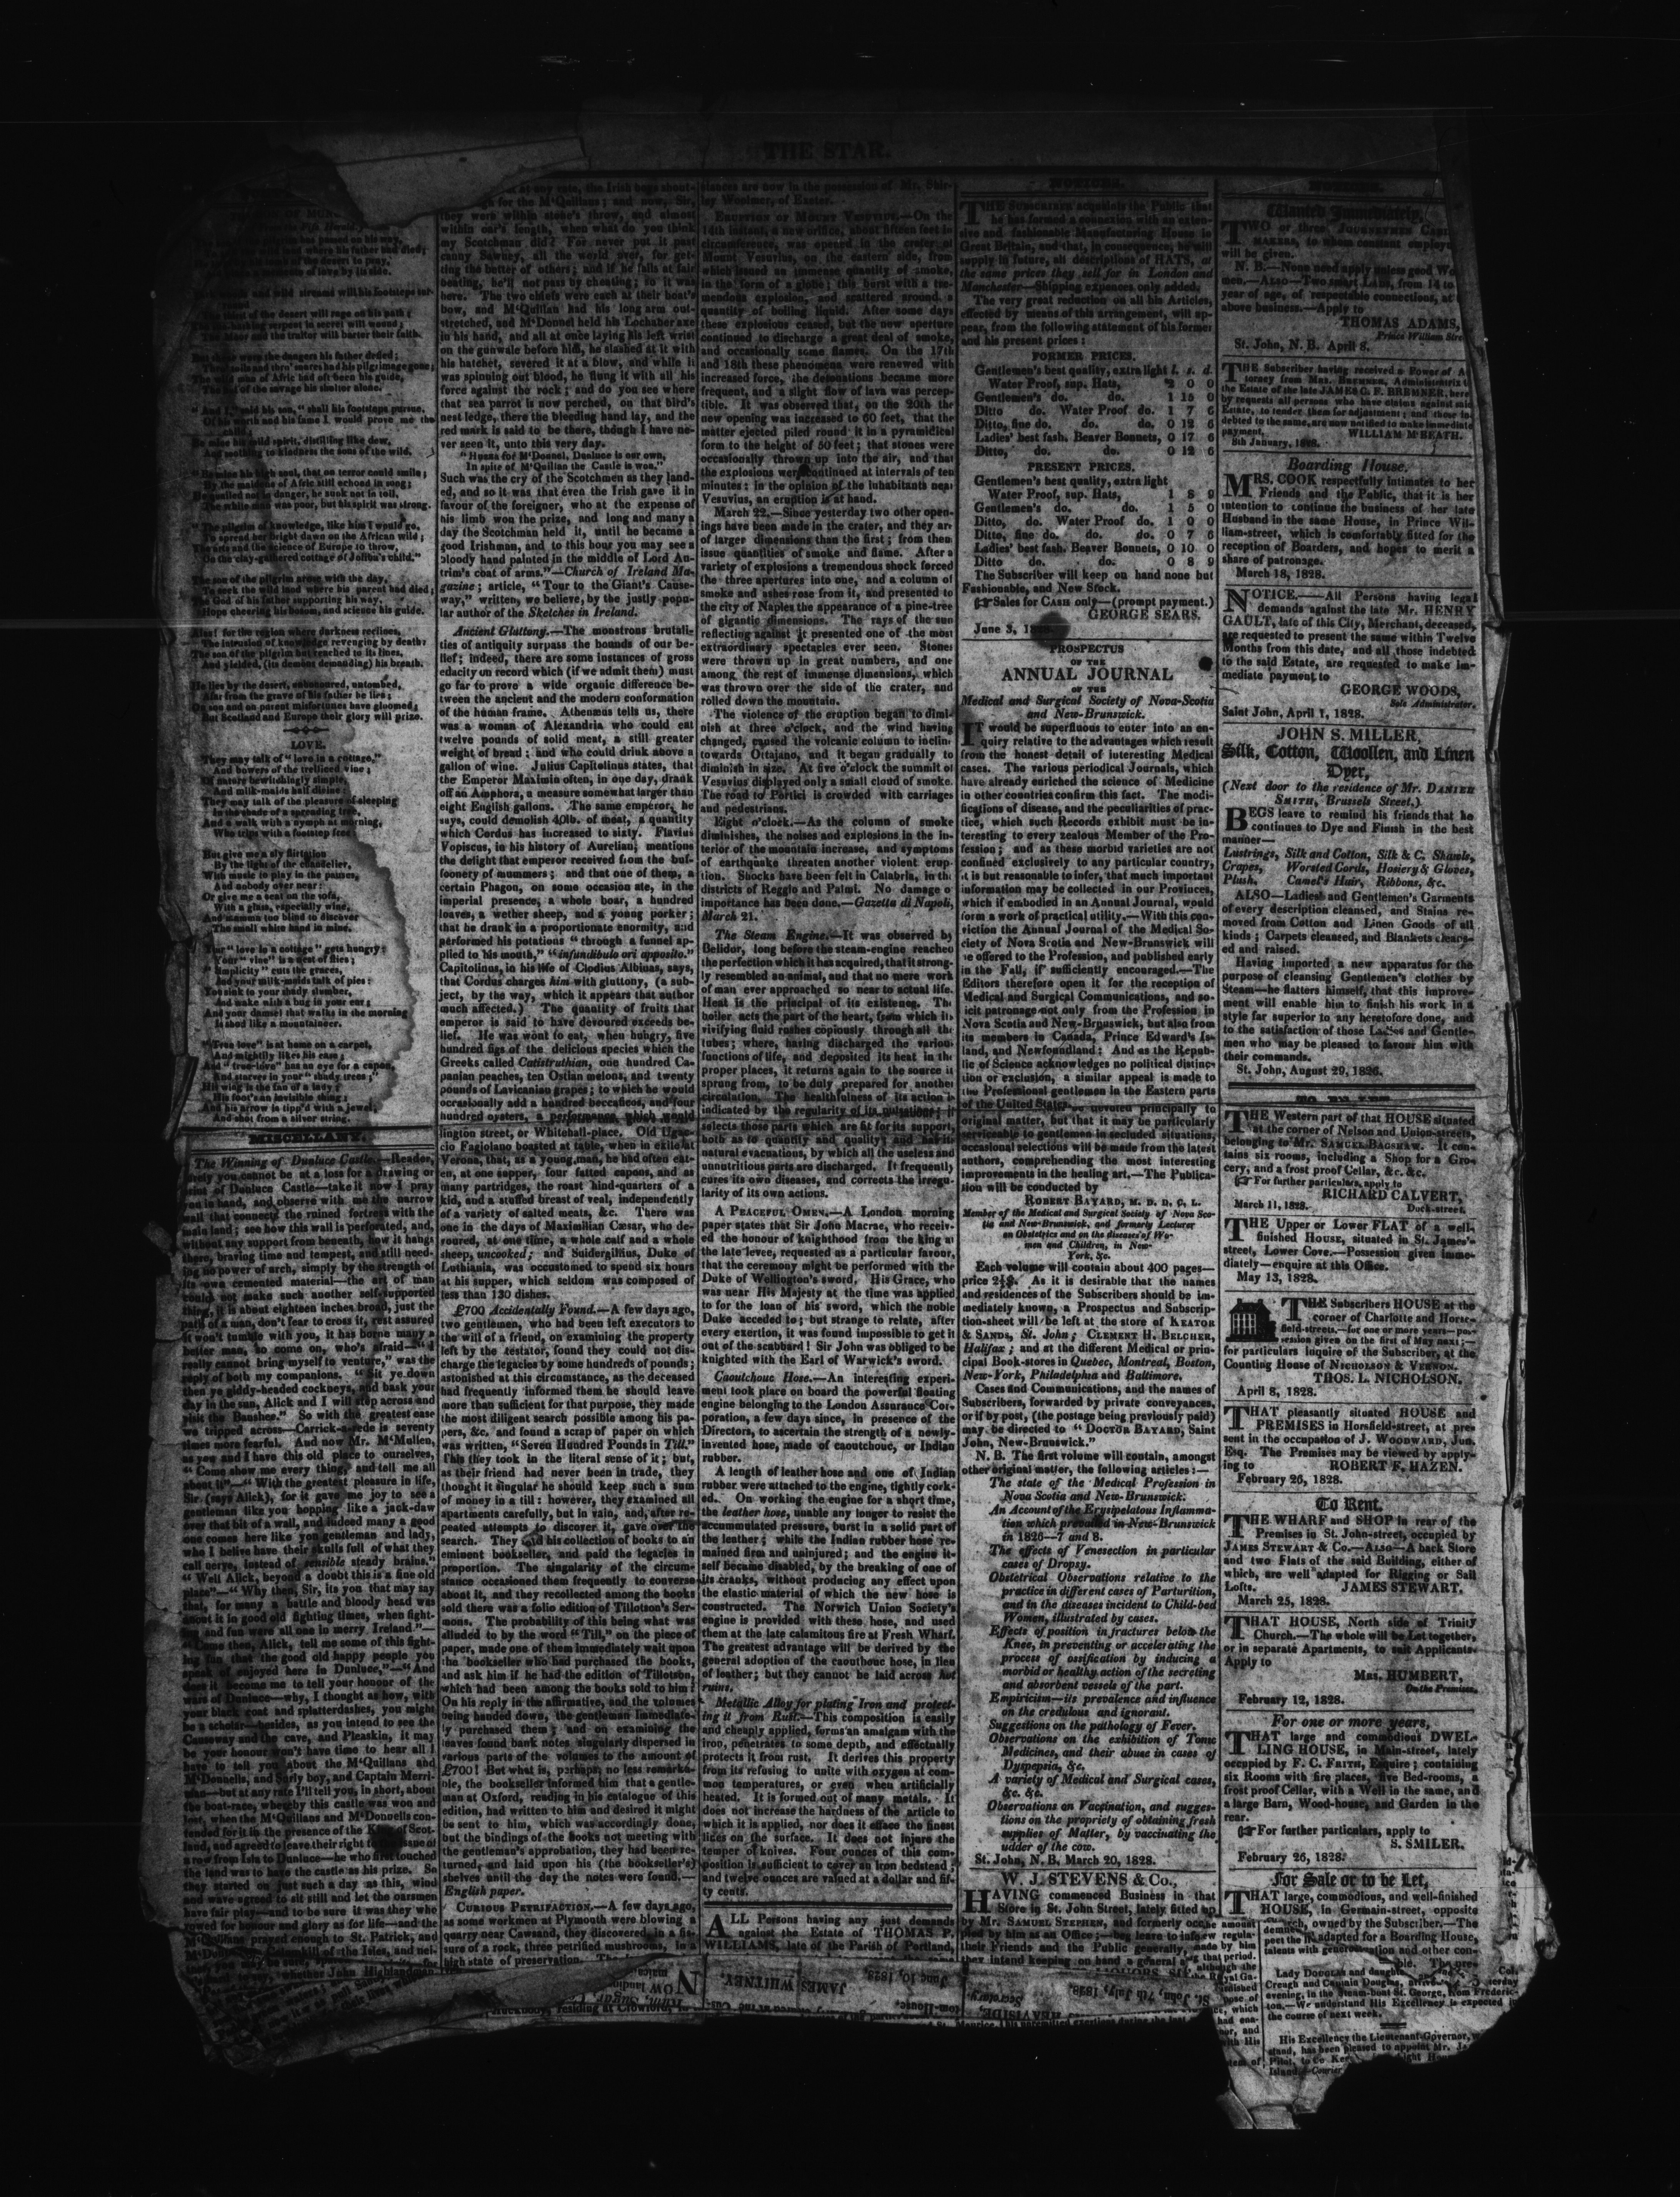 THE STAR.
where his father had died;
of the desert to pray,
of love by its side.
and wild streams will his footsteps
of the desert will rage on his path;
serpent in secret will wound;
The Moor and the traitor will barter their faith.
the dangers his father defied;
had his pilgrimage gone;
of Afric had oft been his guide,
of the savage his similar alone.
said his son, "shall his footsteps pursue,
Of his worth and his fame I would prove me the
child;
his mild spirit, distilling like dew,
And nothing to kindness the sons of the wild.
his high soul, that on terror could smile;
By the maidens of Afric still echoed in song;
He quailed not in danger, he sunk not in toil,
The white man was poor, but his spirit was strong.
"The pilgrim of knowledge, like him I would go,
To spread her bright dawn on the African wild;
The arts and the science of Europe to throw,
On the clay-gathered cottage of Joliba's child."
The son of the pilgrim arose with the day,
To seek the wild land where his parent had died;
The God of his father supporting his way,
Hope cheering his bosom, and science his guide.
Alas! for the region where darkness reclines,
The intrusion of knowledge revenging by death:
The son of the pilgrim but reached to its lines,
And yielded, (its demons demanding) his breath.
He lies by the desert, unhonoured, untombed,
Afar from the grave of his father he lies;
On son and on parent misfortunes have gloomed,
But Scotland and Europe their glory will prize.
LOVE.
They may talk of "love in a cottage,"
And bowers of the trelliced vine;
Of nature bewitchingly simple,
And milk-maids half divine;
They may talk of the pleasure of sleeping
In the shade of a spreading tree,
And a walk with a nymph at morning,
Who trips with a footstep free
But give me a sly flirtation
By the light of the chandelier,
With music to play in the pauses,
And nobody over near:
Or give me a seat on the sofa,
With a glass, especially wine,
And mamma too blind to discover
The small white hand in mine.
Your "love in a cottage" gets hungry;
Your "vine" is a nest of flies;
"Simplicity" cuts the graces,
And your milk-maids talk of pies:
You sink to your shady slumber,
And wake with a bug in your ear;
And your damsel that walks in the morning
Is shod like a mountaineer.
"True love" is at home on a carpet,
And mightily likes his ease;
And "true-love" has an eye for a capon,
And starves in your "shady trees;"
His wing is the fan of a lady;
His foot's an invisible thing;
And his arrow is tipp'd with a jewel,
And shot from a silver string.
MISCELLANY.
The Winning of Dunluce Castle.—Reader,
surely you cannot be at a loss for a drawing or
print of Dunluce Castle—take it now I pray
you in hand, and observe with me the narrow
wall that connects the ruined fortress with the
main land; see how this wall is perforated, and,
without any support from beneath, how it hangs
there, braving time and tempest, and still need-
ing no power of arch, simply by the strength of
its own cemented material—the art of man
could not make such another self-supported
thing, it is about eighteen inches broad, just the
path of a man, don't fear to cross it, rest assured
it won't tumble with you, it has borne many a
better man, so come on, who's afraid—"I
really cannot bring myself to venture," was the
reply of both my companions. "Sit ye down
then ye giddy-headed cockneys, and bask your
day in the sun, Alick and I will step across and
visit the Banshee." So with the greatest ease
we tripped across—Carrick-a-rede is seventy
times more fearful. And now Mr. M'Mullen,
as you and I have this old place to ourselves,
"Come show me every thing, and tell me all
about it"—"With the greatest pleasure in life,
Sir (says Alick), for it gave me joy to see a
gentleman like you hopping like a jack-daw
over that bit of a wall, and indeed many a good
one comes here like yon gentleman and lady,
who I believe have their skulls full of what they
call nerve, instead of sensible steady brains."
"Well Alick, beyond a doubt this is a fine old
place"—"Why then, Sir, its you that may say
that, for many a battle and bloody head was
about it in good old fighting times, when fight-
ing and fun were all one in merry Ireland."—
"Come then, Alick, tell me some of this fight-
ing fun that the good old happy people you
speak of enjoyed here in Dunluce,"—"And
does it become me to tell your honour of the
wars of Dunluce—why, I thought as how, with
your black goat and splatterdashes, you might
be a scholar—besides, as you intend to see the
Causeway and the cave, and Pleaskin, it may
be your honour won't have time to hear all I
have to tell you about the M'Quilans and
M'Donnells, and Sorly boy, and Captain Merri-
man—but at any rate I'll tell you, in short, about
the boat-race, whereby this castle was won and
lost, when the M'Quilans and M'Donnells con-
tended for it in the presence of the King of Scot-
land, and agreed to leave their right to the issue of
a row from Isla to Dunluce—he who first touched
the land was to have the castle as his prize. So
they started on just such a day as this, wind
and wave agreed to sit still and let the oarsmen
have fair play—and to be sure it was they who
rowed for honour and glory as for life—and the
M'Quilans prayed enough to St. Patrick, and
at any rate, the Irish boys about-
for the M'Quilans; and now, Sir,
they were within stone's throw, and almost
within oar's length, when what do you think
my Scotchman did? For never put it past
canny Sawney, all the world over, for get-
ting the better of others; and if he fails at fair
beating, he'll not pass by cheating; so it was
here. The two chiefs were each at their boat's
bow, and M'Quilan had his long arm out-
stretched, and M'Donnel held his Lochaber axe
in his hand, and all at once laying his left wrist
on the gunwale before him, he slashed at it with
his hatchet, severed it at a blow, and while it
was spinning out blood, he flung it with all his
force against the rock; and do you see where
that sea parrot is now perched, on that bird's
nest ledge, there the bleeding hand lay, and the
red mark is said to be there, though I have ne-
ver seen it, unto this very day.
"Huzza for M'Donnel, Dunluce is our own,
In spite of M'Quilan the Castle is won."
Such was the cry of the Scotchmen as they land-
ed, and so it was that even the Irish gave it in
favour of the foreigner, who at the expense of
his limb won the prize, and long and many a
day the Scotchman held it, until he became a
good Irishman, and to this hour you may see a
bloody hand painted in the middle of Lord An-
trim's coat of arms."—Church of Ireland Ma-
gazine; article, "Tour to the Giant's Cause-
way," written, we believe, by the justly popu-
lar author of the Sketches in Ireland.
Ancient Gluttony.—The monstrous brutali-
ties of antiquity surpass the bounds of our be-
lief; indeed, there are some instances of gross
edacity on record which (if we admit them) must
go far to prove a wide organic difference be-
tween the ancient and the modern conformation
of the human frame. Athenæus tells us, there
was a woman of Alexandria who could eat
twelve pounds of solid meat, a still greater
weight of bread; and who could drink above a
gallon of wine. Julius Capitolinus states, that
the Emperor Maximin often, in one day, drank
off an Amphora, a measure somewhat larger than
eight English gallons. The same emperor, he
says, could demolish 40lb. of meat, a quantity
which Cordus has increased to sixty. Flavius
Vopiscus, in his history of Aurelian, mentions
the delight that emperor received from the buf-
foonery of mummers; and that one of them, a
certain Phagon, on some occasion ate, in the
imperial presence, a whole boar, a hundred
loaves, a wether sheep, and a young porker;
that he drank in a proportionate enormity, and
performed his potations "through a funnel ap-
plied to his mouth," "infundibulo ori apposito."
Capitolinus, in his life of Clodius Albinus, says,
that Cordus charges him with gluttony, (a sub-
ject, by the way, which it appears that author
much affected.) The quantity of fruits that
emperor is said to have devoured exceeds be-
lief. He was wont to eat, when hungry, five
hundred figs of the delicious species which the
Greeks called Catistruthian, one hundred Ca-
panian peaches, ten Ostian melons, and twenty
pounds of Lavicanian grapes; to which he would
occasionally add a hundred beccaficos, and four
hundred oysters, a performance which would
lington street, or Whitehall-place. Old Uguc-
cio Fagiolano boasted at table, when in exile at
Verona, that, as a young man, he had often eat-
en, at one supper, four fatted capons, and as
many partridges, the roast hind-quarters of a
kid, and a stuffed breast of veal, independently
of a variety of salted meats, &c. There was
one in the days of Maximilian Cæsar, who de-
voured, at one time, a whole calf and a whole
sheep, uncooked; and Suidergillius, Duke of
Luthiania, was occustomed to spend six hours
at his supper, which seldom was composed of
less than 130 dishes.
£700 Accidentally Found.—A few days ago,
two gentlemen, who had been left executors to
the will of a friend, on examining the property
left by the testator, found they could not dis-
charge the legacies by some hundreds of pounds;
astonished at this circumstance, as the deceased
had frequently informed them he should leave
more than sufficient for that purpose, they made
the most diligent search possible among his pa-
pers, &c. and found a scrap of paper on which
was written, "Seven Hundred Pounds in Till."
This they took in the literal sense of it; but,
as their friend had never been in trade, they
thought it singular he should keep such a sum
of money in a till: however, they examined all
apartments carefully, but in vain, and, after re-
peated attempts to discover it, gave over the
search. They sold his collection of books to an
eminent bookseller, and paid the legacies in
proportion. The singularity of the circum-
stance occasioned them frequently to converse
about it, and they recollected among the books
sold there was a folio edition of Tillotson's Ser-
mons. The probability of this being what was
alluded to by the word "Till," on the piece of
paper, made one of them immediately wait upon
the bookseller who had purchased the books,
and ask him if he had the edition of Tillotson,
which had been among the books sold to him?
On his reply in the affirmative, and the volumes
being handed down, the gentleman immediate-
ly purchased them; and on examining the
leaves found bank notes singularly dispersed in
various parts of the volumes to the amount of
£700! But what is, perhaps, no less remarka-
ble, the bookseller informed him that a gentle-
man at Oxford, reading in his catalogue of this
edition, had written to him and desired it might
be sent to him, which was accordingly done,
but the bindings of the books not meeting with
the gentleman's approbation, they had been re-
turned, and laid upon his (the bookseller's)
shelves until the day the notes were found.—
English paper.
CURIOUS PETRIFACTION.—A few days ago,
as some workmen at Plymouth were blowing a
quarry near Cawsand, they discovered, in a fis-
sure of a rock, three petrified mushrooms, in a
high state of preservation.
stances are now in the possession of Mr. Shir-
ley Woolmer, of Exeter.
ERUPTION OF MOUNT VESUVIUS.—On the
14th instant, a new orifice, about fifteen feet in
circumference, was opened in the crater of
Mount Vesuvius, on the eastern side, from
which issued an immense quantity of smoke,
in the form of a globe; this burst with a tre-
mendous explosion, and scattered around a
quantity of boiling liquid. After some days
these explosions ceased, but the new aperture
continued to discharge a great deal of smoke,
and occasionally some flames. On the 17th
and 18th these phenomena were renewed with
increased force, the detonations became more
frequent, and a slight flow of lava was percep-
tible. It was observed that, on the 20th the
new opening was increased to 60 feet, that the
matter ejected piled round it in a pyramidical
form to the height of 50 feet; that stones were
occasionally thrown up into the air, and that
the explosions were continued at intervals of ten
minutes: in the opinion of the inhabitants near
Vesuvius, an eruption is at hand.
March 22.—Since yesterday two other open-
ings have been made in the crater, and they are
of larger dimensions than the first; from them
issue quantities of smoke and flame. After a
variety of explosions a tremendous shock forced
the three apertures into one, and a column of
smoke and ashes rose from it, and presented to
the city of Naples the appearance of a pine-tree
of gigantic dimensions. The rays of the sun
reflecting against it presented one of the most
extraordinary spectacles ever seen. Stones
were thrown up in great numbers, and one
among the rest of immense dimensions, which
was thrown over the side of the crater, and
rolled down the mountain.
The violence of the eruption began to dimi-
nish at three o'clock, and the wind having
changed, caused the volcanic column to incline
towards Ottajano, and it began gradually to
diminish in size. At five o'clock the summit of
Vesuvius displayed only a small cloud of smoke.
The road to Portici is crowded with carriages
and pedestrians.
Eight o'clock.—As the column of smoke
diminishes, the noises and explosions in the in-
terior of the mountain increase, and symptoms
of earthquake threaten another violent erup-
tion. Shocks have been felt in Calabria, in the
districts of Reggio and Palmi. No damage o
importance has been done.—Gazetta di Napoli,
March 21.
The Steam Engine.—It was observed by
Belidor, long before the steam-engine reached
the perfection which it has acquired, that it strong-
ly resembled an animal, and that no mere work
of man ever approached so near to actual life.
Heat is the principal of its existence. The
boiler acts the part of the heart, from which its
vivifying fluid rushes copiously through all the
tubes; where, having discharged the various
functions of life, and deposited its heat in the
proper places, it returns again to the source it
sprung from, to be duly prepared for another
circulation. The healthfulness of its action is
indicated by the regularity of its pulsations; it
selects those parts which are fit for its support,
both as to quantity and quality; and has its
natural evacuations, by which all the useless and
unnutritious parts are discharged. It frequently
cures its own diseases, and corrects the irregu-
larity of its own actions.
A PEACEFUL OMEN.—A London morning
paper states that Sir John Macrae, who receiv-
ed the honour of knighthood from the king at
the late levee, requested as a particular favour,
that the ceremony might be performed with the
Duke of Wellington's sword. His Grace, who
was near His Majesty at the time was applied
to for the loan of his sword, which the noble
Duke acceded to; but strange to relate, after
every exertion, it was found impossible to get it
out of the scabbard! Sir John was obliged to be
knighted with the Earl of Warwick's sword.
Caoutchouc Hose.—An interesting experi-
ment took place on board the powerful floating
engine belonging to the London Assurance Cor-
poration, a few days since, in presence of the
Directors, to ascertain the strength of a newly-
invented hose, made of caoutchouc, or Indian
rubber.
A length of leather hose and one of Indian
rubber were attached to the engine, tightly cork-
ed. On working the engine for a short time,
the leather hose, unable any longer to resist the
accumulated pressure, burst in a solid part of
the leather; while the Indian rubber hose re-
mained firm and uninjured; and the engine it-
self became disabled, by the breaking of one of
its cranks, without producing any effect upon
the elastic material of which the new hose is
constructed. The Norwich Union Society's
engine is provided with these hose, and used
them at the late calamitous fire at Fresh Wharf.
The greatest advantage will be derived by the
general adoption of the caouthouc hose, in lieu
of leather; but they cannot be laid across hot
ruins.
Metallic Alloy for plating Iron and protect-
ing it from Rust.—This composition is easily
and cheaply applied, forms an amalgam with the
iron, penetrates to some depth, and effectually
protects it from rust. It derives this property
from its refusing to unite with oxygen at com-
mon temperatures, or even when artificially
heated. It is formed out of many metals. It
does not increase the hardness of the article to
which it is applied, nor does it efface the finest
lines on the surface. It does not injure the
temper of knives. Four ounces of this com-
position is sufficient to cover an iron bedstead;
and twelve ounces are valued at a dollar and fif-
ty cents.
ALL Persons having any just demands
against the Estate of THOMAS P.
WILLIAMS, late of the Parish of Portland,
JAMES WHITNEY.
June 10, 1828.
NOTICES.
THE SUBSCRIBER acquaints the Public that
he has formed a connexion with an exten-
sive and fashionable Manufacturing House in
Great Britain, and that, in consequence, he will
supply in future, all descriptions of HATS, at
the same prices they sell for in London and
Manchester—Shipping expences only added.
The very great reduction on all his Articles,
effected by means of this arrangement, will ap-
pear, from the following statement of his former
and his present prices:
FORMER PRICES.
Gentlemen's best quality, extra light l. s. d.
Water Proof, sup. Hats, 2 0 0
Gentlemen's do. do. 1 15 0
Ditto do. Water Proof do. 1 7 6
Ditto, fine do. do. do. 0 12 6
Ladies' best fash. Beaver Bonnets, 0 17 6
Ditto, do. do. 0 12 6
PRESENT PRICES.
Gentlemen's best quality, extra light
Water Proof, sup. Hats, 1 8 9
Gentlemen's do. do. 1 5 0
Ditto, do. Water Proof do. 1 0 0
Ditto, fine do. do. do. 0 7 6
Ladies' best fash. Beaver Bonnets, 0 10 0
Ditto do. do. 0 8 9
The Subscriber will keep on hand none but
Fashionable, and New Stock.
☞ Sales for CASH only—(prompt payment.)
GEORGE SEARS.
June 3, 1828.
PROSPECTUS
OF THE
ANNUAL JOURNAL
OF THE
Medical and Surgical Society of Nova-Scotia
and New-Brunswick.
IT would be superfluous to enter into an en-
quiry relative to the advantages which result
from the honest detail of interesting Medical
cases. The various periodical Journals, which
have already enriched the science of Medicine
in other countries confirm this fact. The modi-
fications of disease, and the peculiarities of prac-
tice, which such Records exhibit must be in-
teresting to every zealous Member of the Pro-
fession; and as these morbid varieties are not
confined exclusively to any particular country,
it is but reasonable to infer, that much important
information may be collected in our Provinces,
which if embodied in an Annual Journal, would
form a work of practical utility.—With this con-
viction the Annual Journal of the Medical So-
ciety of Nova Scotia and New-Brunswick will
be offered to the Profession, and published early
in the Fall, if sufficiently encouraged.—The
Editors therefore open it for the reception of
Medical and Surgical Communications, and so-
licit patronage not only from the Profession in
Nova Scotia and New-Brunswick, but also from
its members in Canada, Prince Edward's Is-
land, and Newfoundland: And as the Repub-
lic of Science acknowledges no political distinc-
tion or exclusion, a similar appeal is made to
the Professional gentlemen in the Eastern parts
of the United States devoted principally to
original matter, but that it may be particularly
serviceable to gentlemen in secluded situations,
occasional selections will be made from the latest
authors, comprehending the most interesting
improvements in the healing art.—The Publica-
tion will be conducted by
ROBERT BAYARD, M. D. D. C. L.
Member of the Medical and Surgical Society of Nova Sco-
tia and New-Brunswick, and formerly Lecturer
on Obstetrics and on the diseases of Wo-
men and Children, in New-
York, &c.
Each volume will contain about 400 pages—
price 2½$. As it is desirable that the names
and residences of the Subscribers should be im-
mediately known, a Prospectus and Subscrip-
tion-sheet will be left at the store of KEATOR
& SANDS, St. John; CLEMENT H. BELCHER,
Halifax; and at the different Medical or prin-
cipal Book-stores in Quebec, Montreal, Boston,
New-York, Philadelphia and Baltimore.
Cases and Communications, and the names of
Subscribers, forwarded by private conveyances,
or if by post, (the postage being previously paid)
may be directed to "DOCTOR BAYARD, Saint
John, New-Brunswick."
N. B. The first volume will contain, amongst
other original matter, the following articles:—
The state of the Medical Profession in
Nova Scotia and New-Brunswick.
An Account of the Erysipelatous Inflamma-
tion which prevailed in New-Brunswick
in 1826—7 and 8.
The effects of Venesection in particular
cases of Dropsy.
Obstetrical Observations relative to the
practice in different cases of Parturition,
and in the diseases incident to Child-bed
Women, illustrated by cases.
Effects of position in fractures below the
Knee, in preventing or accelerating the
process of ossification by inducing a
morbid or healthy action of the secreting
and absorbent vessels of the part.
Empiricism—its prevalence and influence
on the credulous and ignorant.
Suggestions on the pathology of Fever.
Observations on the exhibition of Tonic
Medicines, and their abuse in cases of
Dyspepsia, &c.
A variety of Medical and Surgical cases,
&c. &c.
Observations on Vaccination, and sugges-
tions on the propriety of obtaining fresh
supplies of Matter, by vaccinating the
udder of the cow.
St. John, N. B. March 20, 1828.
W. J. STEVENS & Co.,
HAVING commenced Business in that
Store in St. John Street, lately fitted up
by Mr. SAMUEL STEPHEN, and formerly occu-
pied by him as an Office;—beg leave to inform
their Friends and the Public generally,
they intend keeping on hand a general
St. John, 7th July, 1828.
NOTICES.
Wanted Immediately,
TWO or three JOURNEYMEN CABI
MAKERS, to whom constant employ
will be given.
N. B.—None need apply unless good Wo
men.—ALSO—Two smart LADS, from 14 to
year of age, of respectable connections, at
above business.—Apply to
THOMAS ADAMS,
Prince William Stre
St. John, N. B. April 8.
THE Subscriber having received a Power of A
torney from MRS. BREMNER, Administratrix t
the Estate of the late JAMES C. F. BREMNER, here
by requests all persons who have claims against said
Estate, to render them for adjustment; and those in-
debted to the same, are now notified to make immediate
payment.
WILLIAM M'BEATH.
8th January, 1828.
Boarding House.
MRS. COOK respectfully intimates to her
Friends and the Public, that it is her
intention to continue the business of her late
Husband in the same House, in Prince Wil-
liam-street, which is comfortably fitted for the
reception of Boarders, and hopes to merit a
share of patronage.
March 18, 1828.
NOTICE.—All Persons having legal
demands against the late Mr. HENRY
GAULT, late of this City, Merchant, deceased,
are requested to present the same within Twelve
Months from this date, and all those indebted
to the said Estate, are requested to make im-
mediate payment to
GEORGE WOODS,
Sole Administrator.
Saint John, April 1, 1828.
JOHN S. MILLER,
Silk, Cotton, Woollen, and Linen
Dyer,
(Next door to the residence of Mr. DANIEL
SMITH, Brussels Street.)
BEGS leave to remind his friends that he
continues to Dye and Finish in the best
manner—
Lustrings, Silk and Cotton, Silk & C. Shawls,
Crapes, Worsted Cords, Hosiery & Gloves,
Plush, Camel's Hair, Ribbons, &c.
ALSO—Ladies' and Gentlemen's Garments
of every description cleansed, and Stains re-
moved from Cotton and Linen Goods of all
kinds; Carpets cleansed, and Blankets cleans-
ed and raised.
Having imported a new apparatus for the
purpose of cleansing Gentlemen's clothes by
Steam—he flatters himself, that this improve-
ment will enable him to finish his work in a
style far superior to any heretofore done, and
to the satisfaction of those Ladies and Gentle-
men who may be pleased to favour him with
their commands.
St. John, August 29, 1826.
THE Western part of that HOUSE situated
at the corner of Nelson and Union-streets,
belonging to Mr. SAMUEL BAGSHAW. It con-
tains six rooms, including a Shop for a Gro-
cery, and a frost proof Cellar, &c. &c.
☞ For further particulars, apply to
RICHARD CALVERT,
Duck-street.
March 11, 1828.
THE Upper or Lower FLAT of a well-
finished House, situated in St. James's
street, Lower Cove.—Possession given imme-
diately—enquire at this Office.
May 13, 1828.
THE Subscribers HOUSE at the
corner of Charlotte and Horse-
field-streets.—for one or more years—pos-
session given on the first of May next;—
for particulars inquire of the Subscriber, at the
Counting House of NICHOLSON & VERNON.
THOS. L. NICHOLSON.
April 8, 1828.
THAT pleasantly situated HOUSE and
PREMISES in Horsfield-street, at pres
sent in the occupation of J. WOODWARD, Jun.
Esq. The Premises may be viewed by apply-
ing to ROBERT F. HAZEN.
February 26, 1828.
To Rent.
THE WHARF and SHOP in rear of the
Premises in St. John-street, occupied by
JAMES STEWART & Co.—ALSO—A back Store
and two Flats of the said Building, either of
which, are well adapted for Rigging or Sail
Lofts. JAMES STEWART.
March 25, 1828.
THAT HOUSE, North side of Trinity
Church.—The whole will be Let together,
or in separate Apartments, to suit Applicants-
Apply to
MRS. HUMBERT,
On the Premises.
February 12, 1828.
For one or more years,
THAT large and commodious DWEL-
LING HOUSE, in Main-street, lately
occupied by F. C. FRITH, Esquire; containing
six Rooms with fire places, five Bed-rooms, a
frost proof Cellar, with a Well in the same, and
a large Barn, Wood-house, and Garden in the
rear.
☞ For further particulars, apply to
S. SMILER.
February 26, 1828.
For Sale or to be Let,
THAT large, commodious, and well-finished
HOUSE, in Germain-street, opposite
owned by the Subscriber.—The
adapted for a Boarding House,
and other con-
Lady DOUGLAS and
Creagh and Captain Douglas,
evening, in the Steam-boat St. George, from Frederic-
ton.—We understand His Excellency is expected in
the course of next week.
His Excellency the Lieutenant-Governor,
has been pleased to appoint Mr.
Pilot,